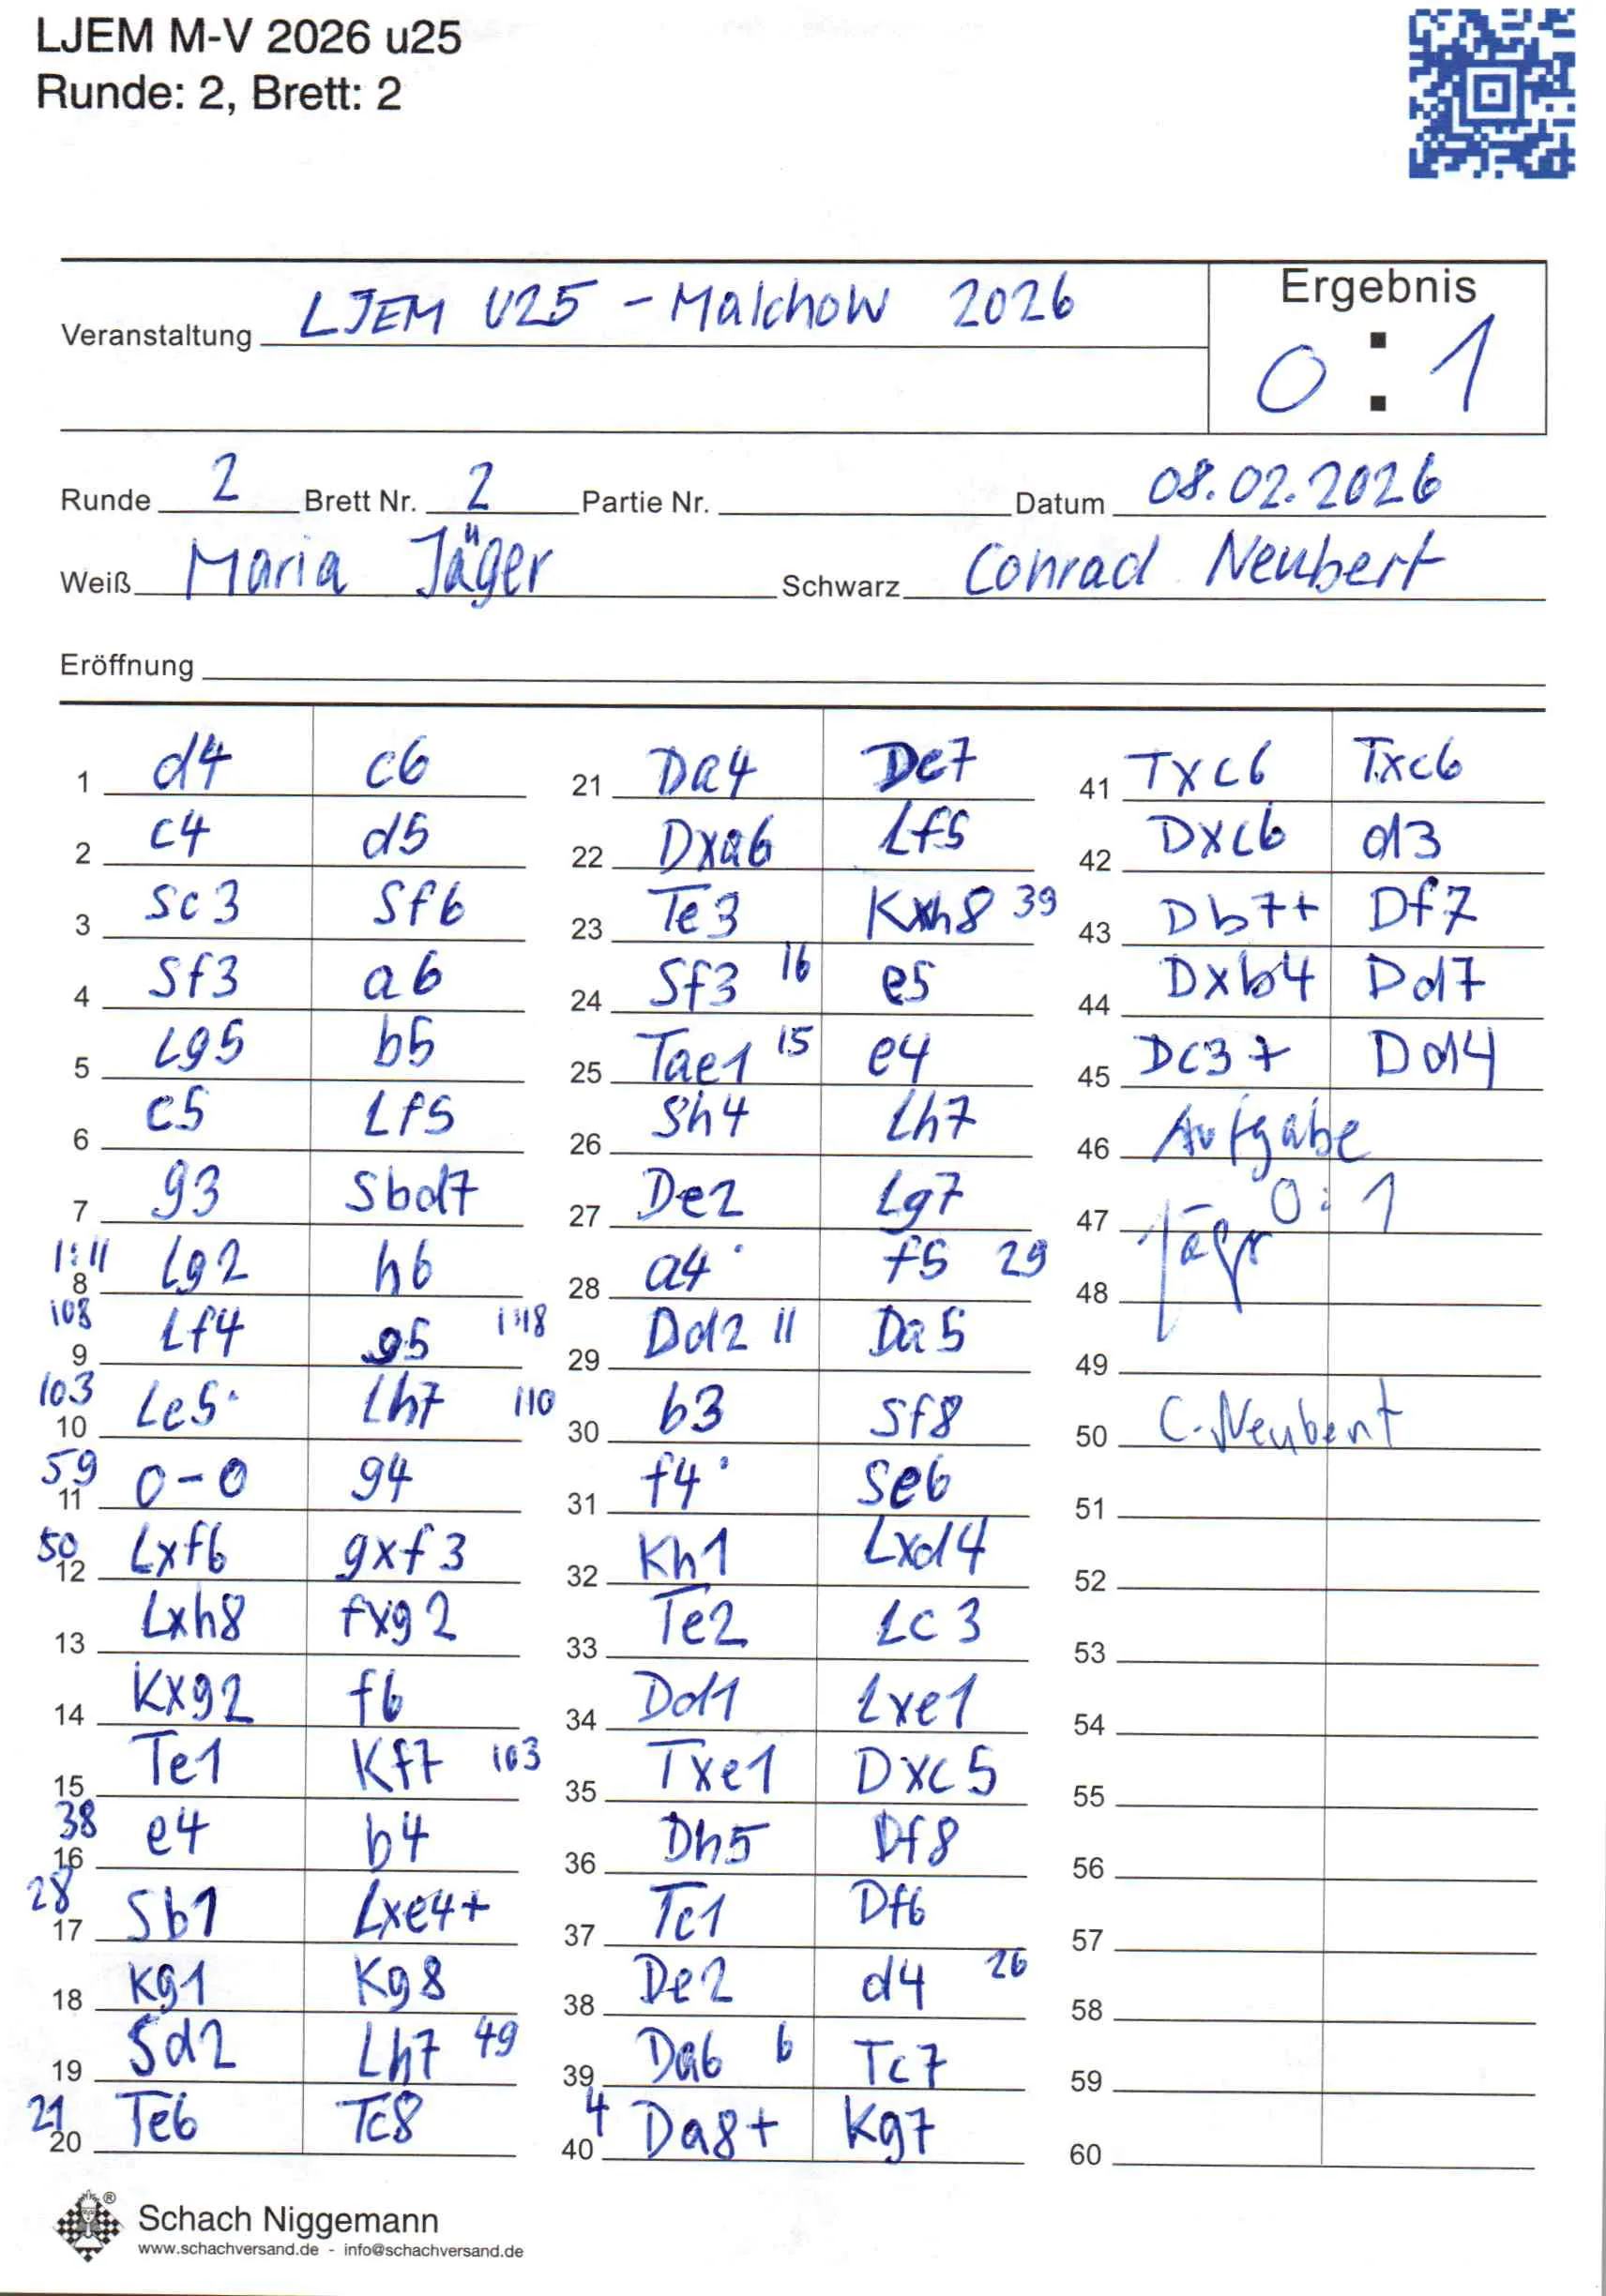 LJEM M-V 2026 u25
Runde: 2, Brett: 2
Ergebnis
Veranstaltung LJEM U25 - Malchow 2026
0 : 1
Runde 2 Brett Nr. 2 Partie Nr. Datum 08.02.2026
Weiß Maria Jäger Schwarz Conrad Neubert
Eröffnung
1 d4 c6
2 c4 d5
3 Sc3 Sf6
4 Sf3 a6
5 Lg5 b5
6 c5 Lf5
7 g3 Sbd7
1:11 8 Lg2 h6
108 9 Lf4 g5 1:18
103 10 Le5 Lh7 110
59 11 0-0 g4
50 12 Lxf6 gxf3
13 Lxh8 fxg2
14 Kxg2 f6
15 Te1 Kf7 103
38 16 e4 b4
28 17 Sb1 Lxe4+
18 Kg1 Kg8
19 Sd2 Lh7 49
21 20 Te6 Tc8
21 Da4 Dc7
22 Dxa6 Lf5
23 Te3 Kxh8 39
24 Sf3 16 e5
25 Tae1 15 e4
26 Sh4 Lh7
27 De2 Lg7
28 a4 f5 29
29 Dd2 11 Da5
30 b3 Sf8
31 f4 Se6
32 Kh1 Lxd4
33 Te2 Lc3
34 Dd1 Lxe1
35 Txe1 Dxc5
36 Dh5 Df8
37 Tc1 Df6
38 De2 d4 26
39 Da6 6 Tc7
4 40 Da8+ Kg7
41 Txc6 Txc6
42 Dxc6 d3
43 Db7+ Df7
44 Dxb4 Dd7
45 Dc3+ Dd4
46 Aufgabe
47 0:1
Jäger
48
49
50 C. Neubert
51
52
53
54
55
56
57
58
59
60
Schach Niggemann
www.schachversand.de - info@schachversand.de